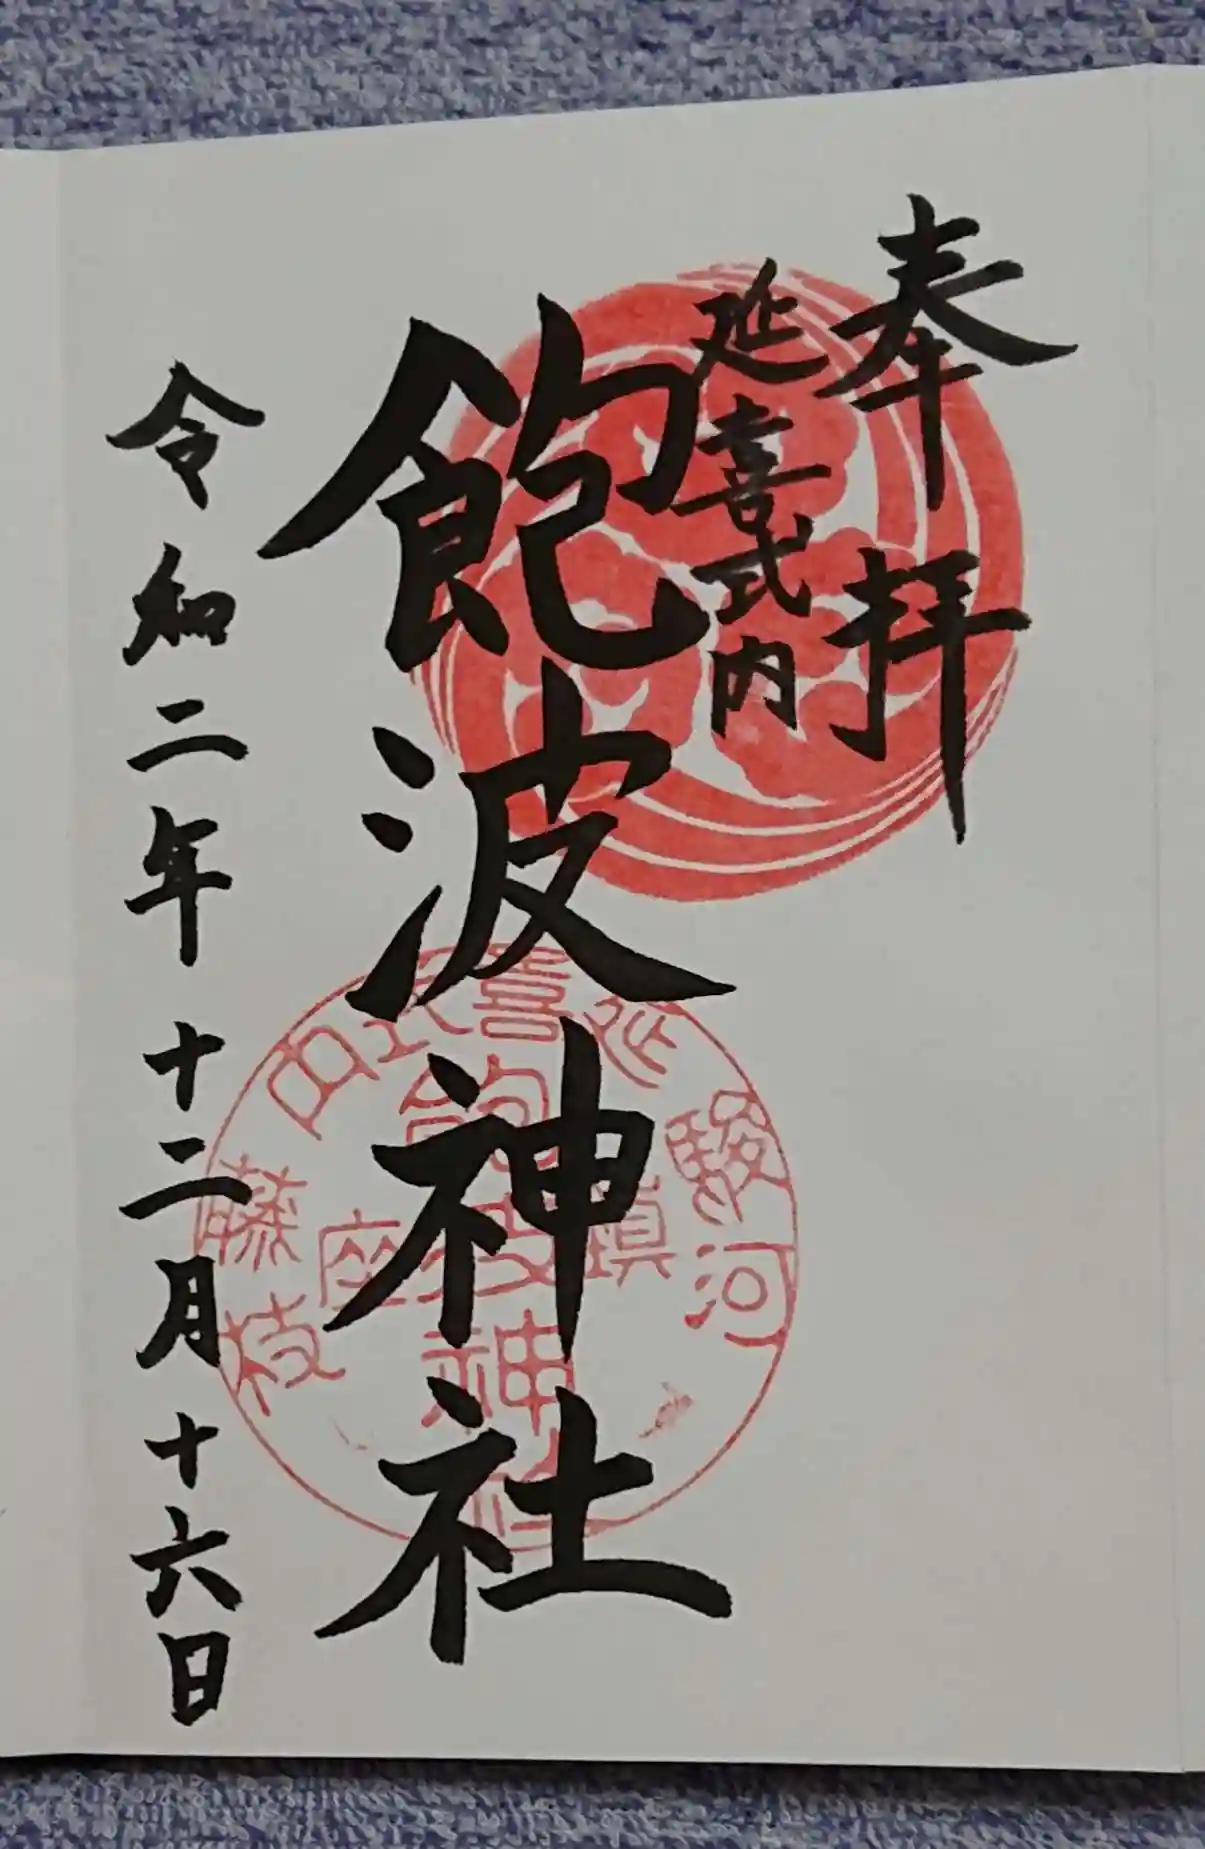 奉拝
延喜式内
飽波神社
令和二年十二月十六日
駿河
延喜式内
藤枝
鎮座
飽波神社